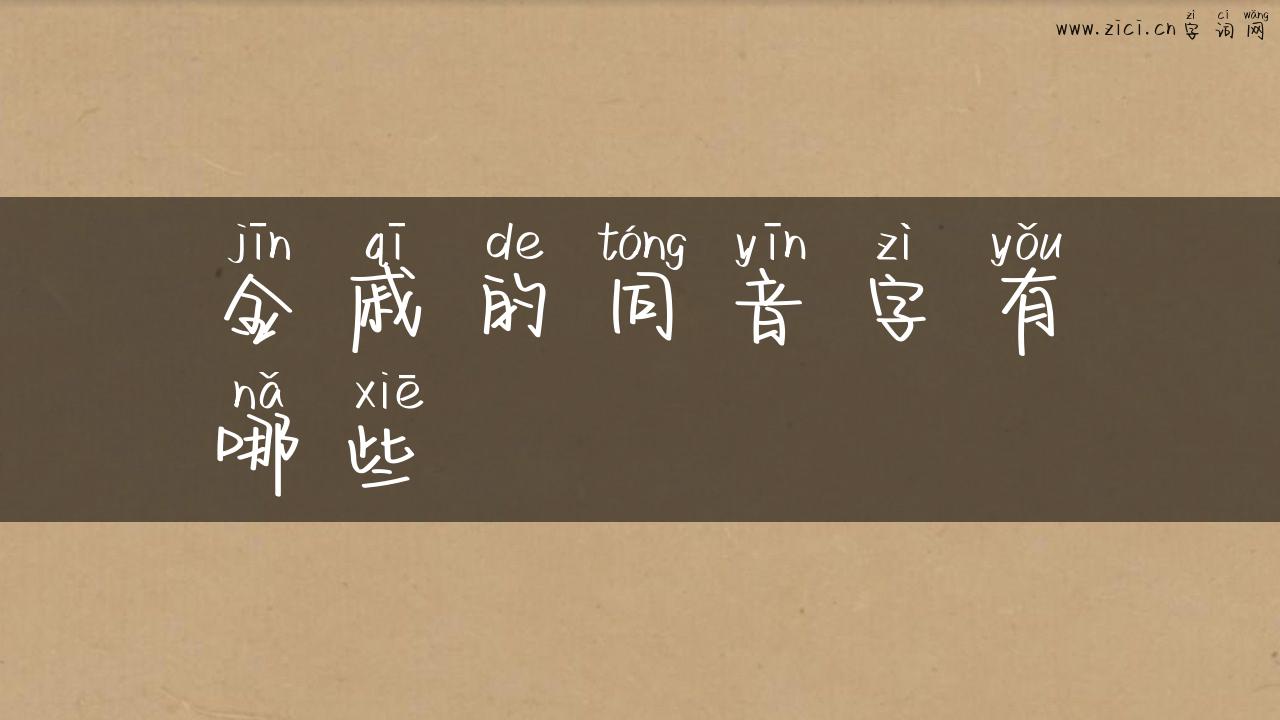 zì cí wǎng
www.zici.cn 字 词 网
jīn qī de tóng yīn zì yǒu
金 戚 的 同 音 字 有
nǎ xiē
哪 些